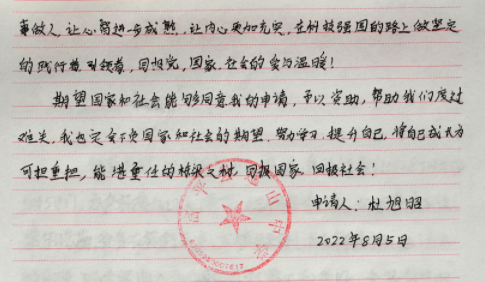 事做人,让心智进一步成熟,让内心更加充实,在科技强国的路上做坚定
的践行者、引领者,回报党,国家,社会的爱与温暖!
期望国家和社会能够同意我的申请,予以资助,帮助我们度过
难关,我也定会不负国家和社会的期望,努力学习,提升自己,将自己成长为
可担重担,能堪重任的栋梁之材,回报国家,回报社会!
申请人:杜旭昭
2022年8月5日